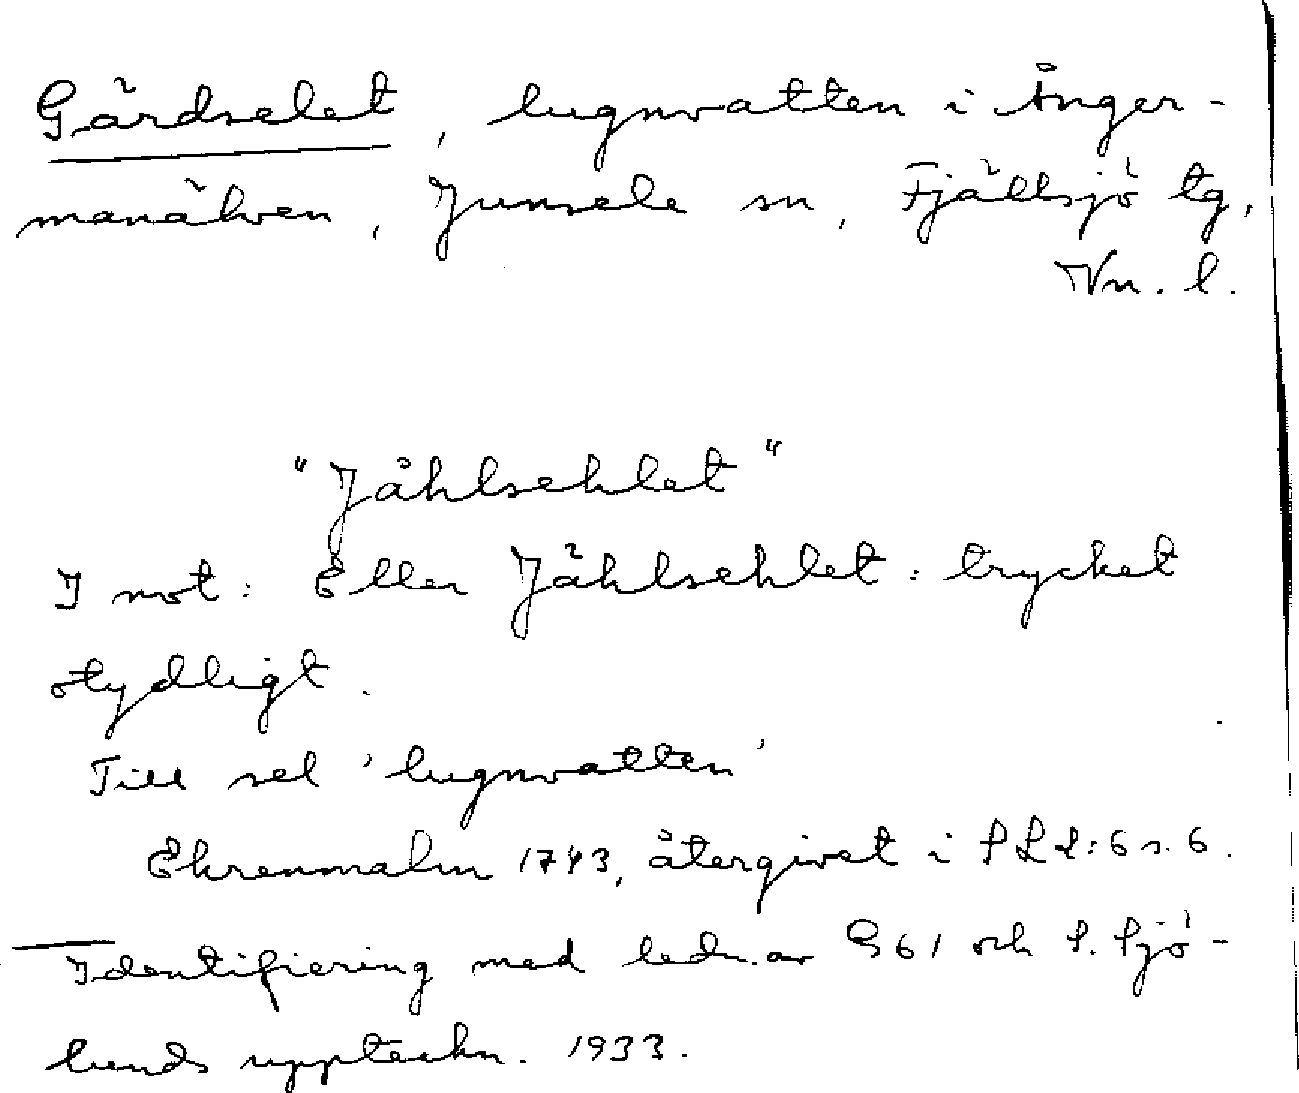 Gärdselet, lugnvatten i Ånger-
manälven, Junsele sn, Fjällsjö tg,
Vn. l.
"Jåhlsehlet"
I not: Eller Jählsehlet: trycket
otydligt.
Till sel 'lugnvatten'
Ehrenmalm 1743, återgivet i s. 6.
Identifiering med ledn. av G61 och S. Sjö-
lunds uppteckn. 1933.